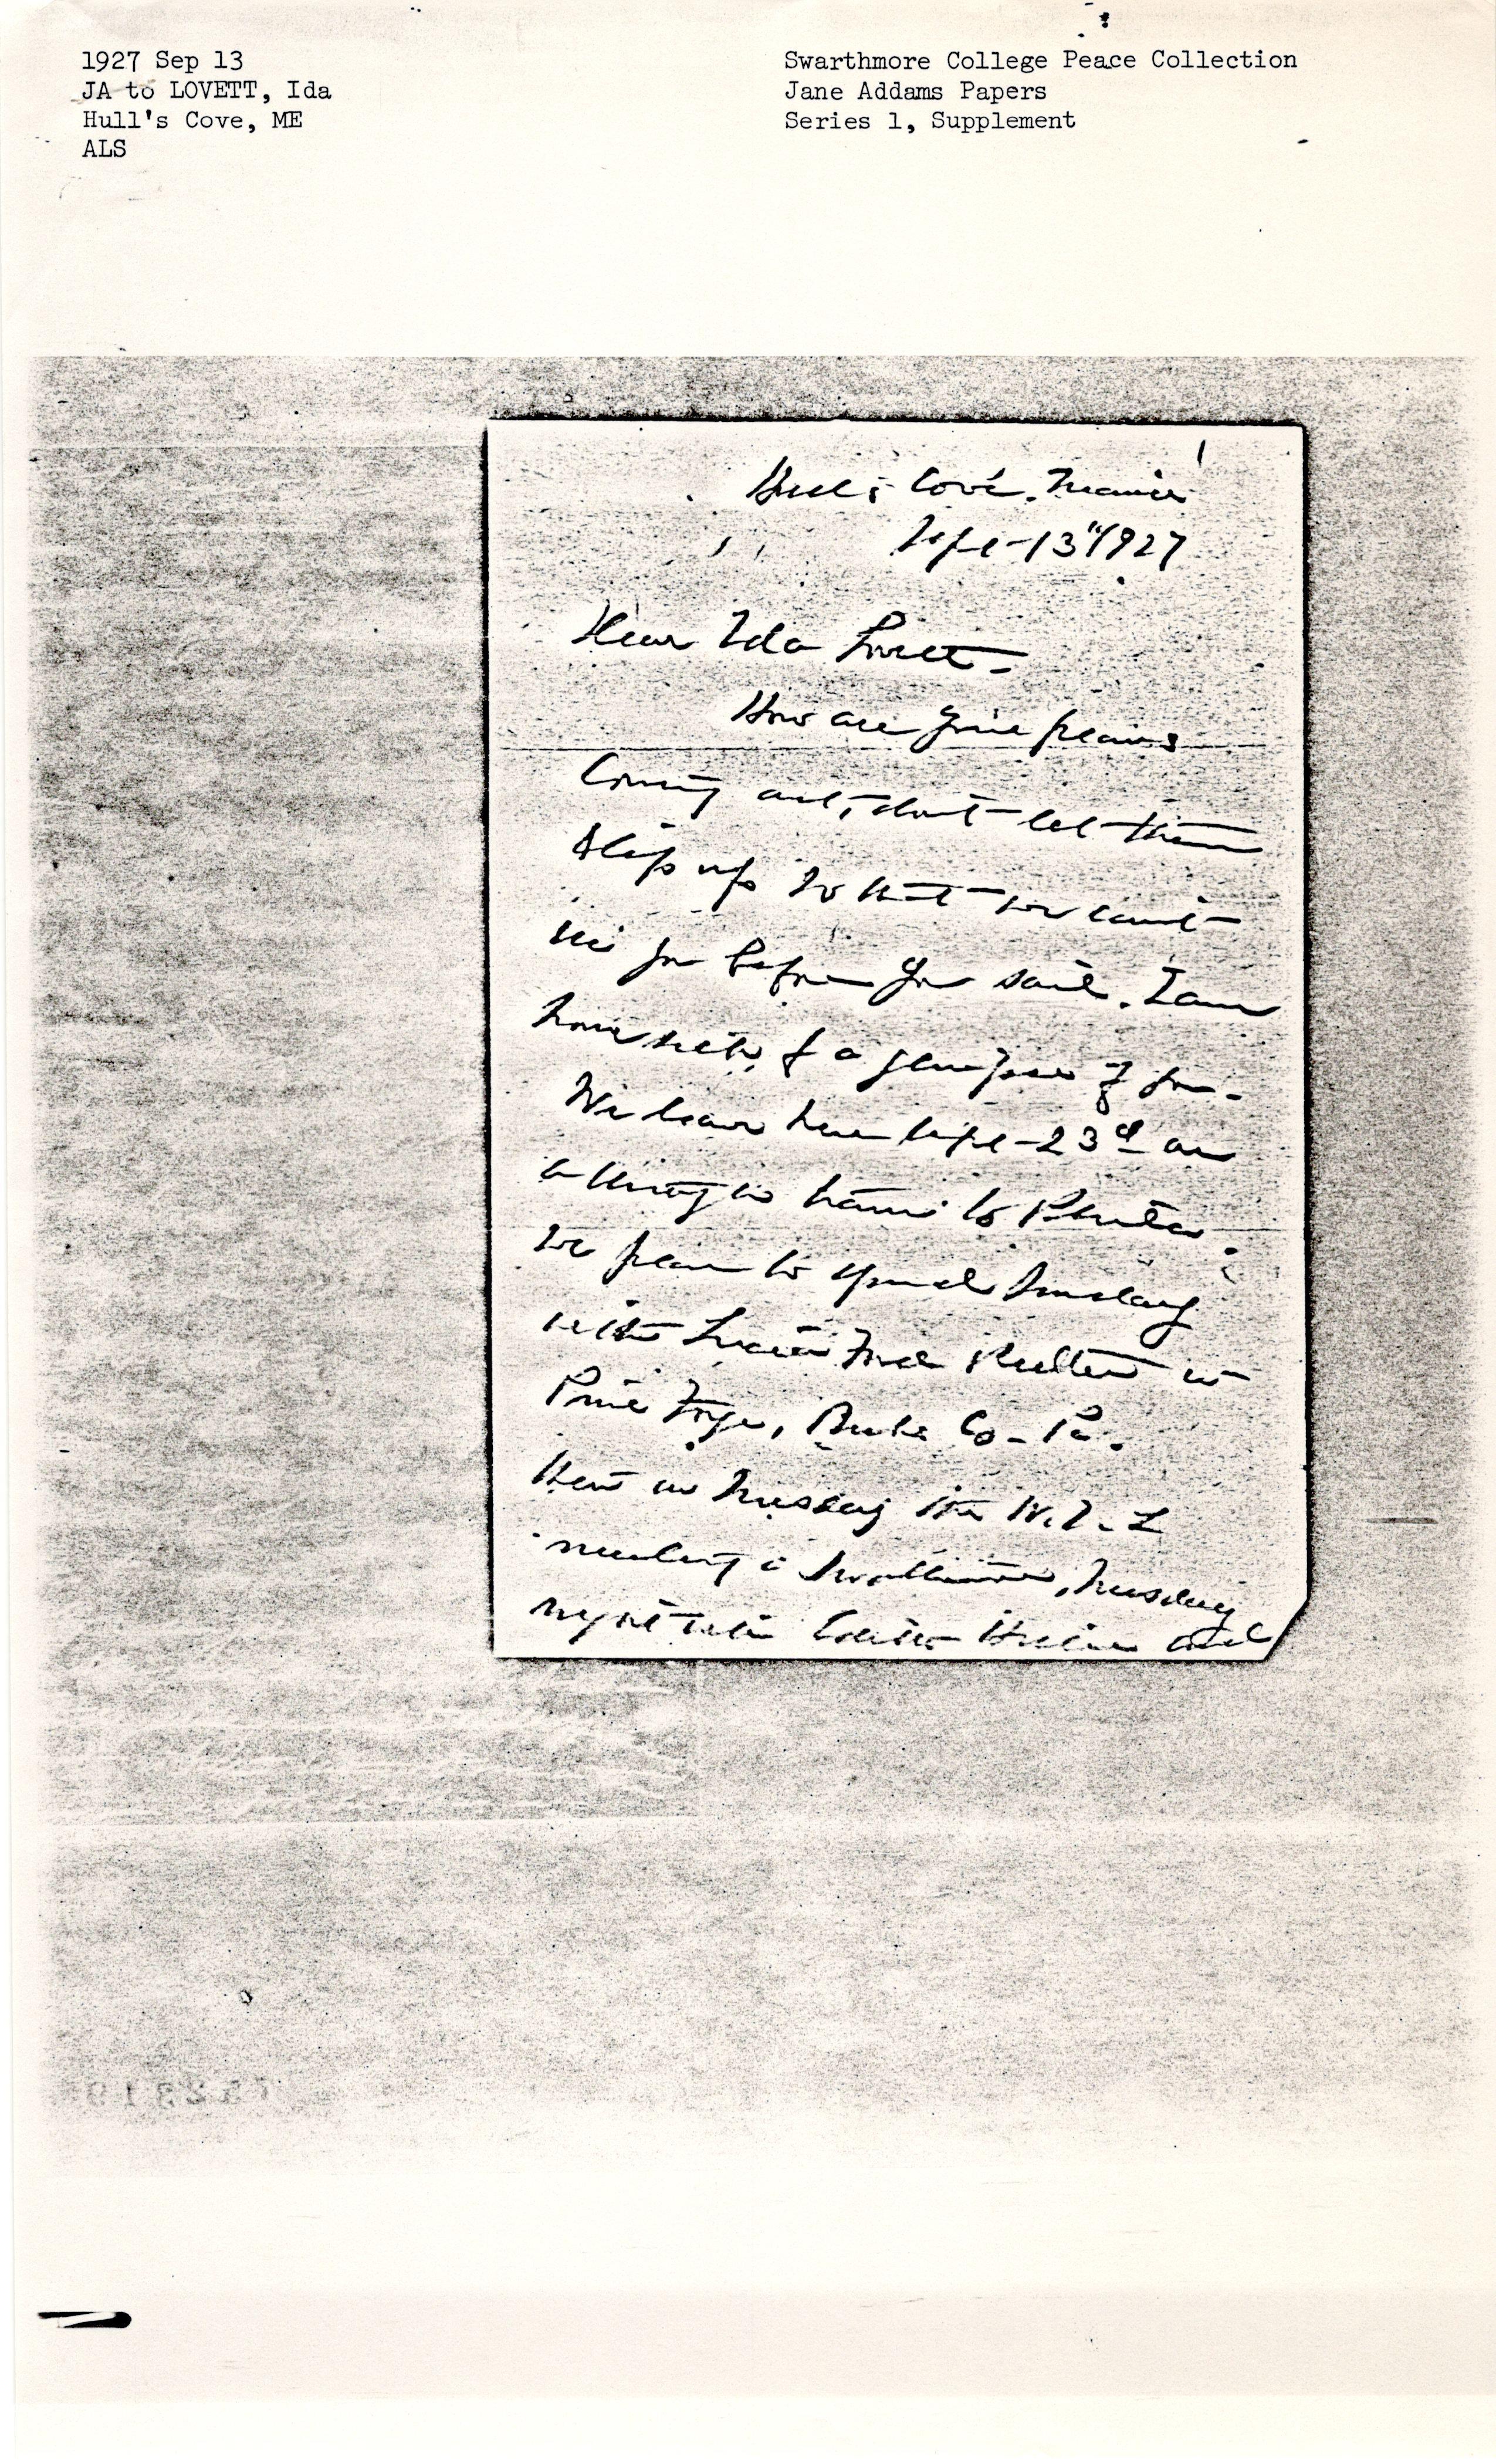 1927 Sep 13
JA to LOVETT, Ida
Hull's Cove, ME
ALS
Swarthmore College Peace Collection
Jane Addams Papers
Series 1, Supplement
Hull's Cove, Maine
Sept-13"/1927
Dear Ida Lovett-
How are your plans
coming out, don't let them
slip up so that we can't
see you before you sail. I am
homesick for a glimpse of you-
We leave here Sept-23d on
a through train to Phila.
We plan to spend Sunday
with
Pine Forge, Berks Co- Pa.
then on Tuesday the W.I.L
meeting in Swarthmore, Tuesday
night with Hull and